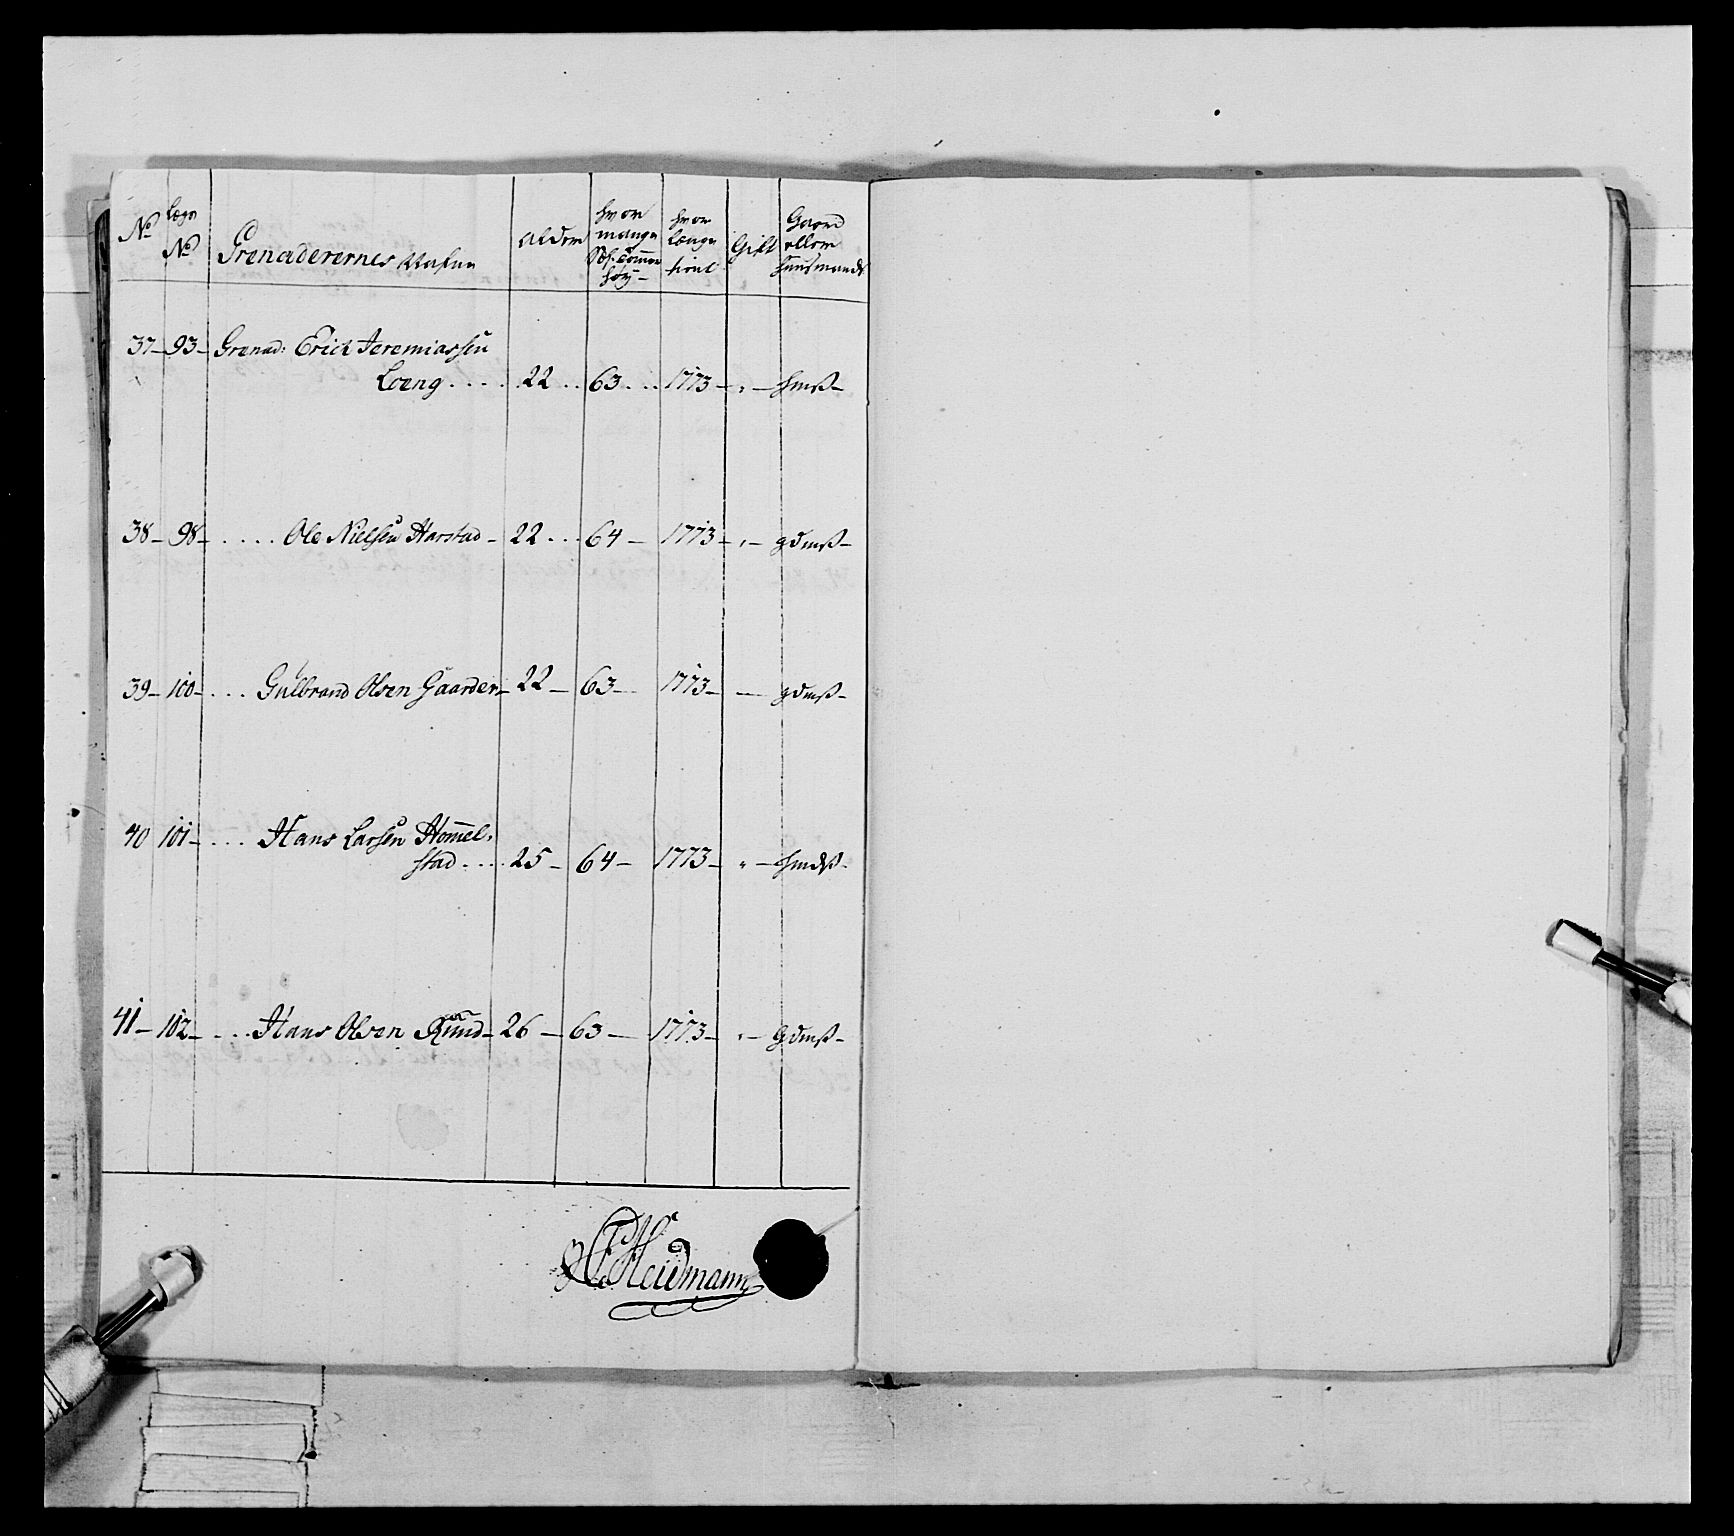 No Lægs No Grenaderernes Nafne alder hvor mange Sch: Tommer høy hvor længe tient Gift Gaard eller huusmands
37 93 Grenad: Erich Jeremiassen
Loeng .... 22 .. 63 ... 1773 „ hmß
38 98 .... Ole Nielsen Harstad 22 ... 64 1773 „ gdmß
39 100 ... Gulbrand Olsen Gaarder 22 63 1773 gdmß
40 101 ... Hans Larsen Hommel-
stad .... 25 64 1773 „ hmdß
41 102 ... Hans Olsen Rund 26 63 1773 „ Gdmß
Heidmann